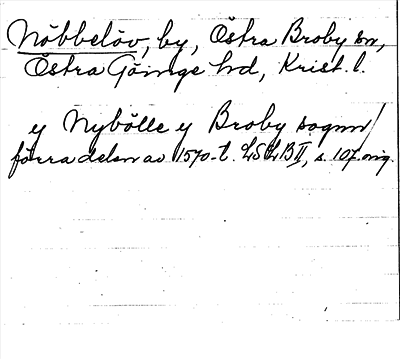 Nöbbelöv, by, Östra Broby sn,
Östra Göinge hd, Krist. l.
y Nybölle y Broby sognn
förra delen av 1570-t. LSLB II, s. 107. orig.